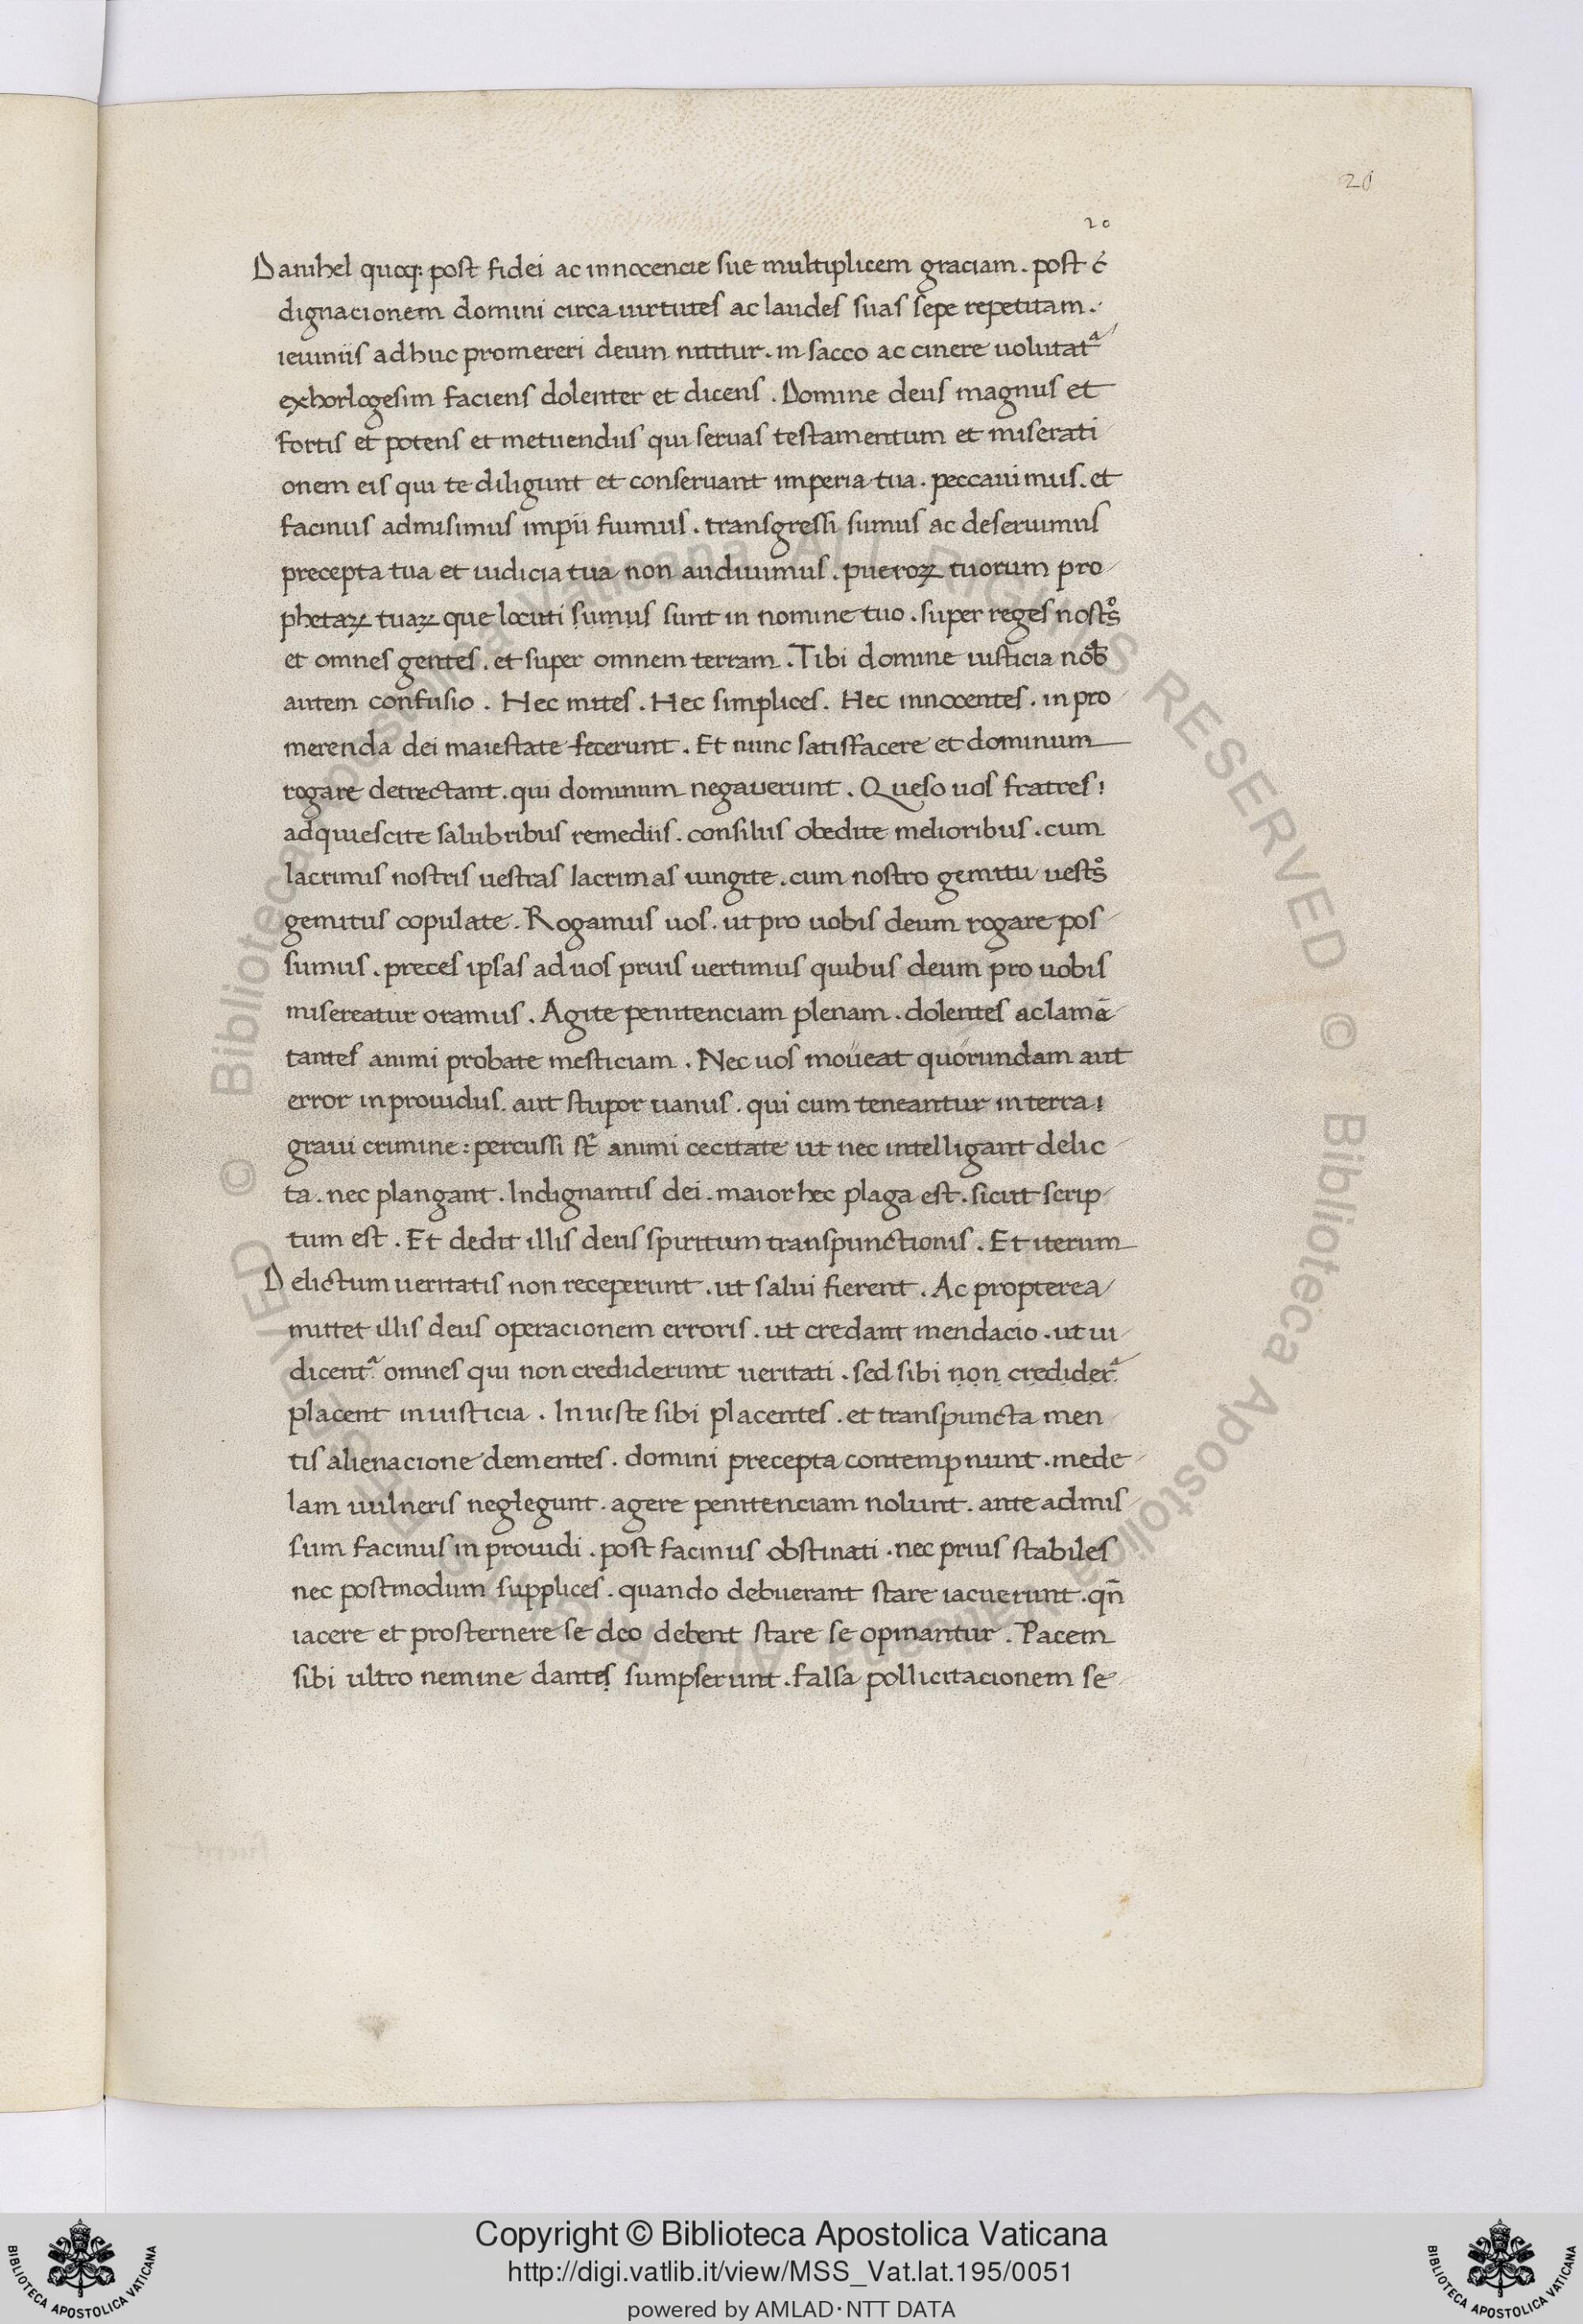 20
20
Danihel quoq: post fidei ac innocencie sue multiplicem graciam. post c̄
dignacionem domini circa uirtutes ac laudes suas sepe repetitam.
ieiuniis adhuc promereri deum nititur. in sacco ac cinere uolutat᷒
exhorlogesim faciens dolenter et dicens. Domine deus magnus et
fortis et potens et metuendus qui seruas testamentum et miserati
onem eis qui te diligunt et conseruant imperia tua. peccauimus. et
facinus admisimus impii fuimus. transgressi sumus ac deseruimus
precepta tua et iudicia tua non audiuimus. pueroꝝ tuorum pro
phetaꝝ tuaꝝ que locuti sumus sunt in nomine tuo. super reges nostͦs
et omnes gentes. et super omnem terram. Tibi domine iusticia nob̄
autem confusio. Hec mites. Hec simplices. Hec innocentes. in pro
merenda dei maiestate fecerunt. Et nunc satisfacere et dominum
rogare detrectant. qui dominum negauerunt. Queso uos fratres!
adquiescite salubribus remediis. consiliis obedite melioribus. cum
lacrimis nostris uestras lacrimas iungite. cum nostro gemitu uestͦs
gemitus copulate. Rogamus uos. ut pro uobis deum rogare pos
sumus. preces ipsas ad uos prius uertimus quibus deum pro uobis
misereatur oramus. Agite penitenciam plenam. dolentes ac lamā
tantes animi probate mesticiam. Nec uos moueat quorundam aut
error inprouidus. aut stupor uanus. qui cum teneantur in terra!
graui crimine: percussi st̄ animi cecitate ut nec intelligant delic
ta. nec plangant. Indignantis dei. maior hec plaga est. sicut scrip
tum est. Et dedit illis deus spiritum transpunctionis. Et iterum
Delictum ueritatis non receperunt. ut salui fierent. Ac propterea
mittet illis deus operacionem erroris. ut credant mendacio. ut iu
dicent᷒ omnes qui non crediderunt ueritati. sed sibi non credider᷒
placent iniusticia. Iniuste sibi placentes. et transpuncta men
tis alienacione dementes. domini precepta contempnunt. mede
lam uulneris neglegunt. agere penitenciam nolunt. ante admis
sum facinus inprouidi. post facinus obstinati. nec prius stabiles
nec postmodum supplices. quando debuerant stare iacuerunt. qn̄
iacere et prosternere se deo debent stare se opinantur. Pacem
sibi ultro nemine dantes sumpserunt. falsa pollicitacionem se
© Biblioteca Apostolica Vaticana ALL RIGHTS RESERVED © Biblioteca Apostolica Vaticana ALL RIGHTS RESERVED
Copyright © Biblioteca Apostolica Vaticana
http://digi.vatlib.it/view/MSS_Vat.lat.195/0051
powered by AMLAD·NTT DATA
BIBLIOTECA APOSTOLICA VATICANA
BIBLIOTECA APOSTOLICA VATICANA